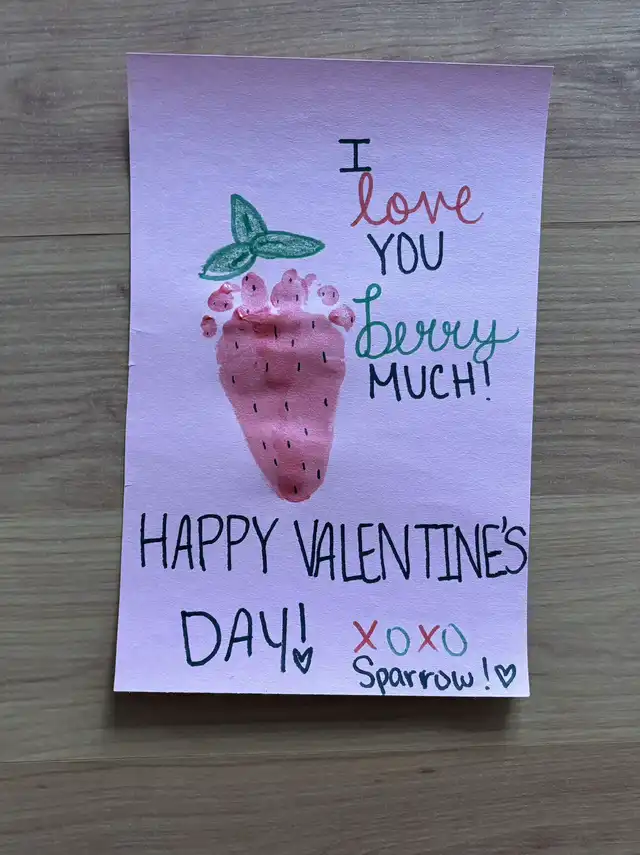 I
love
YOU
berry
MUCH!
HAPPY VALENTINE'S
DAY!
XOXO
Sparrow!